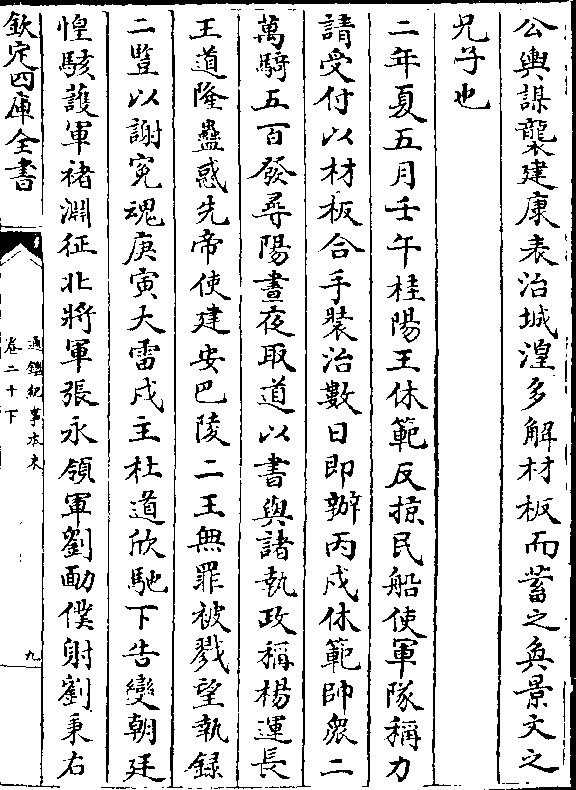 公與謀襲建康表治城湟多解材板而蓄之奐景文之
兄子也
二年夏五月壬午桂陽王休範反掠民船使軍隊稱力
請受付以材板合手裝治數日即辦丙戌休範帥衆二
萬騎五百發尋陽晝夜取道以書與諸執政稱楊運長
王道隆蠱惑先帝使建安巴陵二王無罪被戮望執録
二豎以謝寃魂庚寅大雷戍主杜道欣馳下告變朝廷
惶駭護軍褚淵征北將軍張永領軍劉勔僕射劉秉右
欽定四庫全書
通鑑紀事本末
卷二十下
九